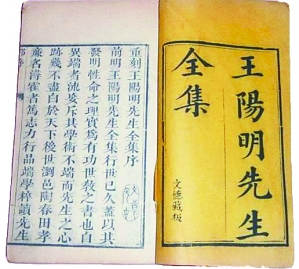 王陽明先生
全集
藏板
重刻王陽明先生全集序
前明王陽明先生全集行世已久蓋以其
發明性命之理實為有功世教之書也自
異端者流妄斥其學術不端而先生之心
跡幾不盡白於天下後世瀏邑陶春田孝
廉名潯霍者篤志力行品端學粹讀先生